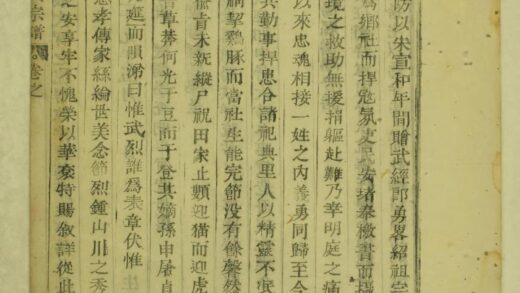 防以宋宣和年間贈武經郎勇畧紹祖宗
為鄉社而捍寇氛吏民安堵奉檄書而攝
境之救助無援捐軀赴難乃幸明庭之痛
以來忠魂相接一姓之內義勇同歸至今
共勤事捍患合諸祀典里人以精靈不泯
酮挈鷄豚而當社生能完節沒有餘馨然
肯未新縱尸祝田家止頰迎猫而迎虎
草莽何光于豆而于登其嫡孫申屠貞
筵而韻溯曰惟武烈誰為表章伏惟
忠孝傳家絲綸世美念節烈鍾山川之秀
之安享牢不愧榮以華袞特賜敘詳從此
宗譜 卷之